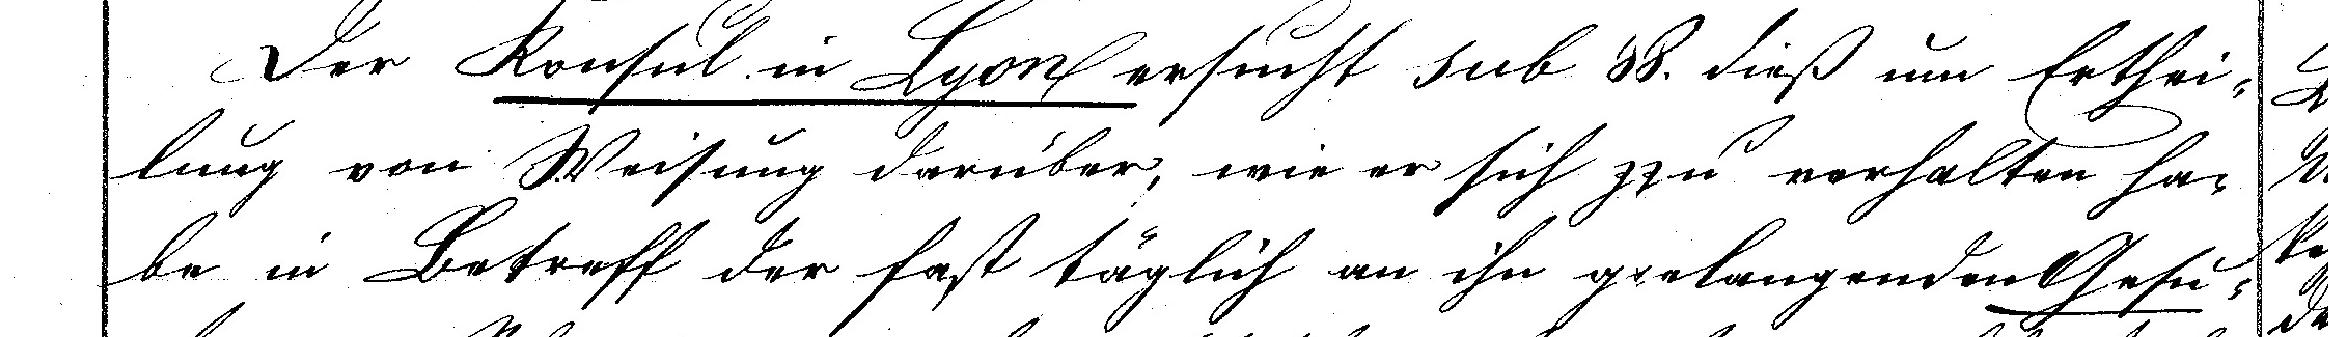 Der Konsul in Lyon ersucht sub 28. dieß um Erthei-
lung von Weisung darüber, wie er sich zu verhalten ha-
be in Betreff der fast täglich an ihn gelangenden Gesu-